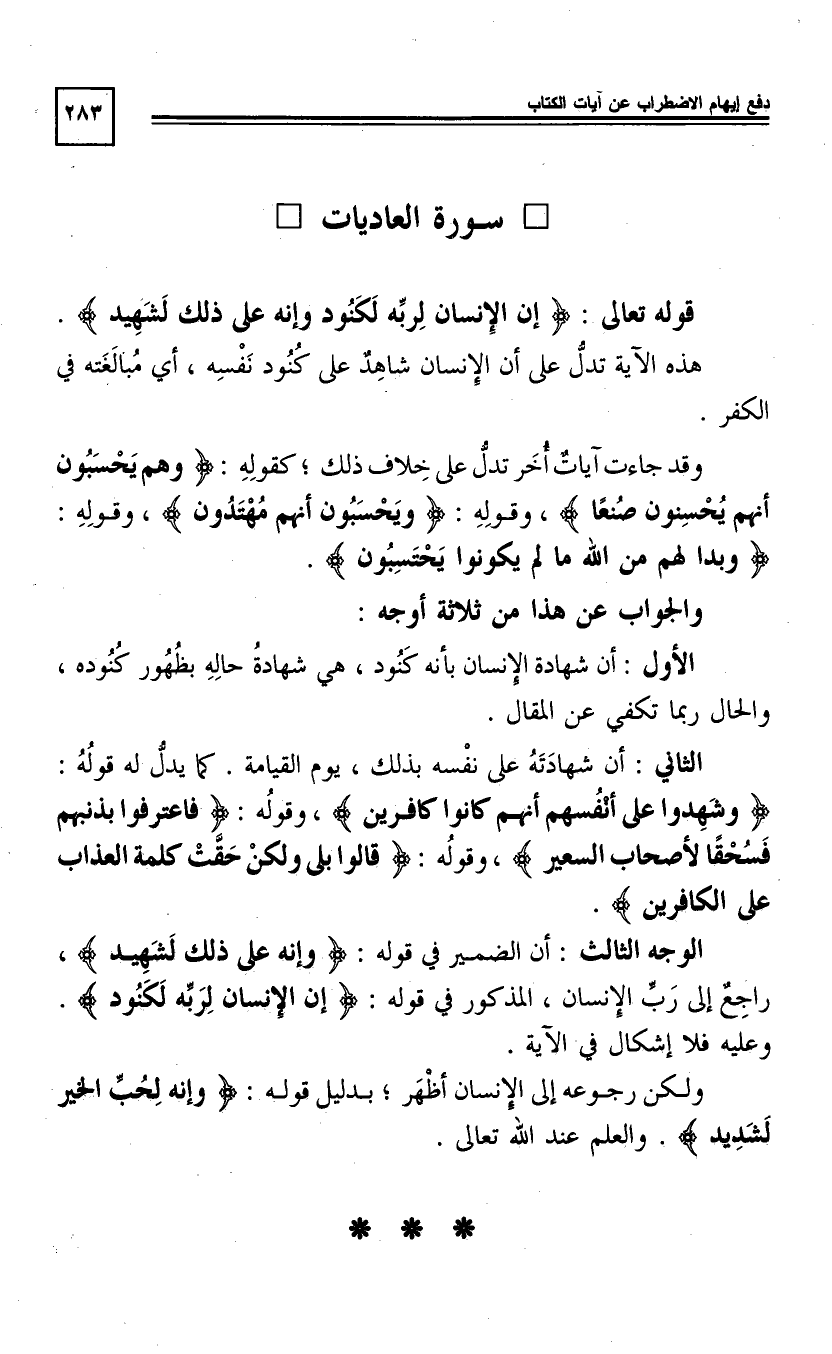 دفع إيهام الاضطراب عن آيات الكتاب
٢٨٣
□ سورة العاديات □
قوله تعالى : ﴿ إن الإنسان لِربِّه لَكَنُود وإنه على ذلك لَشَهِيد ﴾ .
هذه الآية تدلُّ على أن الإنسان شاهِدٌ على كُنُود نَفْسِه ، أي مُبالَغَته في
الكفر .
وقد جاءت آياتٌ أُخَر تدلُّ على خِلاف ذلك ؛ كقولِهِ : ﴿ وهم يَحْسَبُون
أنهم يُحْسِنون صُنعًا ﴾ ، وقولِهِ : ﴿ ويَحْسَبُون أنهم مُهْتَدُون ﴾ ، وقولِهِ :
﴿ وبدا لهم من الله ما لم يكونوا يَحْتَسِبُون ﴾ .
والجواب عن هذا من ثلاثة أوجه :
الأول : أن شهادة الإنسان بأنه كَنُود ، هي شهادةُ حالِهِ بظُهُور كُنُوده ،
والحال ربما تكفي عن المقال .
الثاني : أن شهادَتَهُ على نفْسه بذلك ، يوم القيامة . كما يدلُّ له قولُهُ :
﴿ وشَهِدوا على أنْفُسهم أنهم كانوا كافرين ﴾ ، وقولُه : ﴿ فاعترفوا بذنبهم
فَسُحْقًا لأصحاب السعير ﴾ ، وقولُه : ﴿ قالوا بلى ولكنْ حَقَّتْ كلمة العذاب
على الكافرين ﴾ .
الوجه الثالث : أن الضمير في قوله : ﴿ وإنه على ذلك لَشَهِيد ﴾ ،
راجِعٌ إلى رَبِّ الإنسان ، المذكور في قوله : ﴿ إن الإنسان لِرَبِّه لَكَنُود ﴾ .
وعليه فلا إشكال في الآية .
ولكن رجوعه إلى الإنسان أظْهَر ؛ بدليل قوله : ﴿ وإنه لِحُبِّ الخير
لَشَدِيد ﴾ . والعلم عند الله تعالى .
* * *